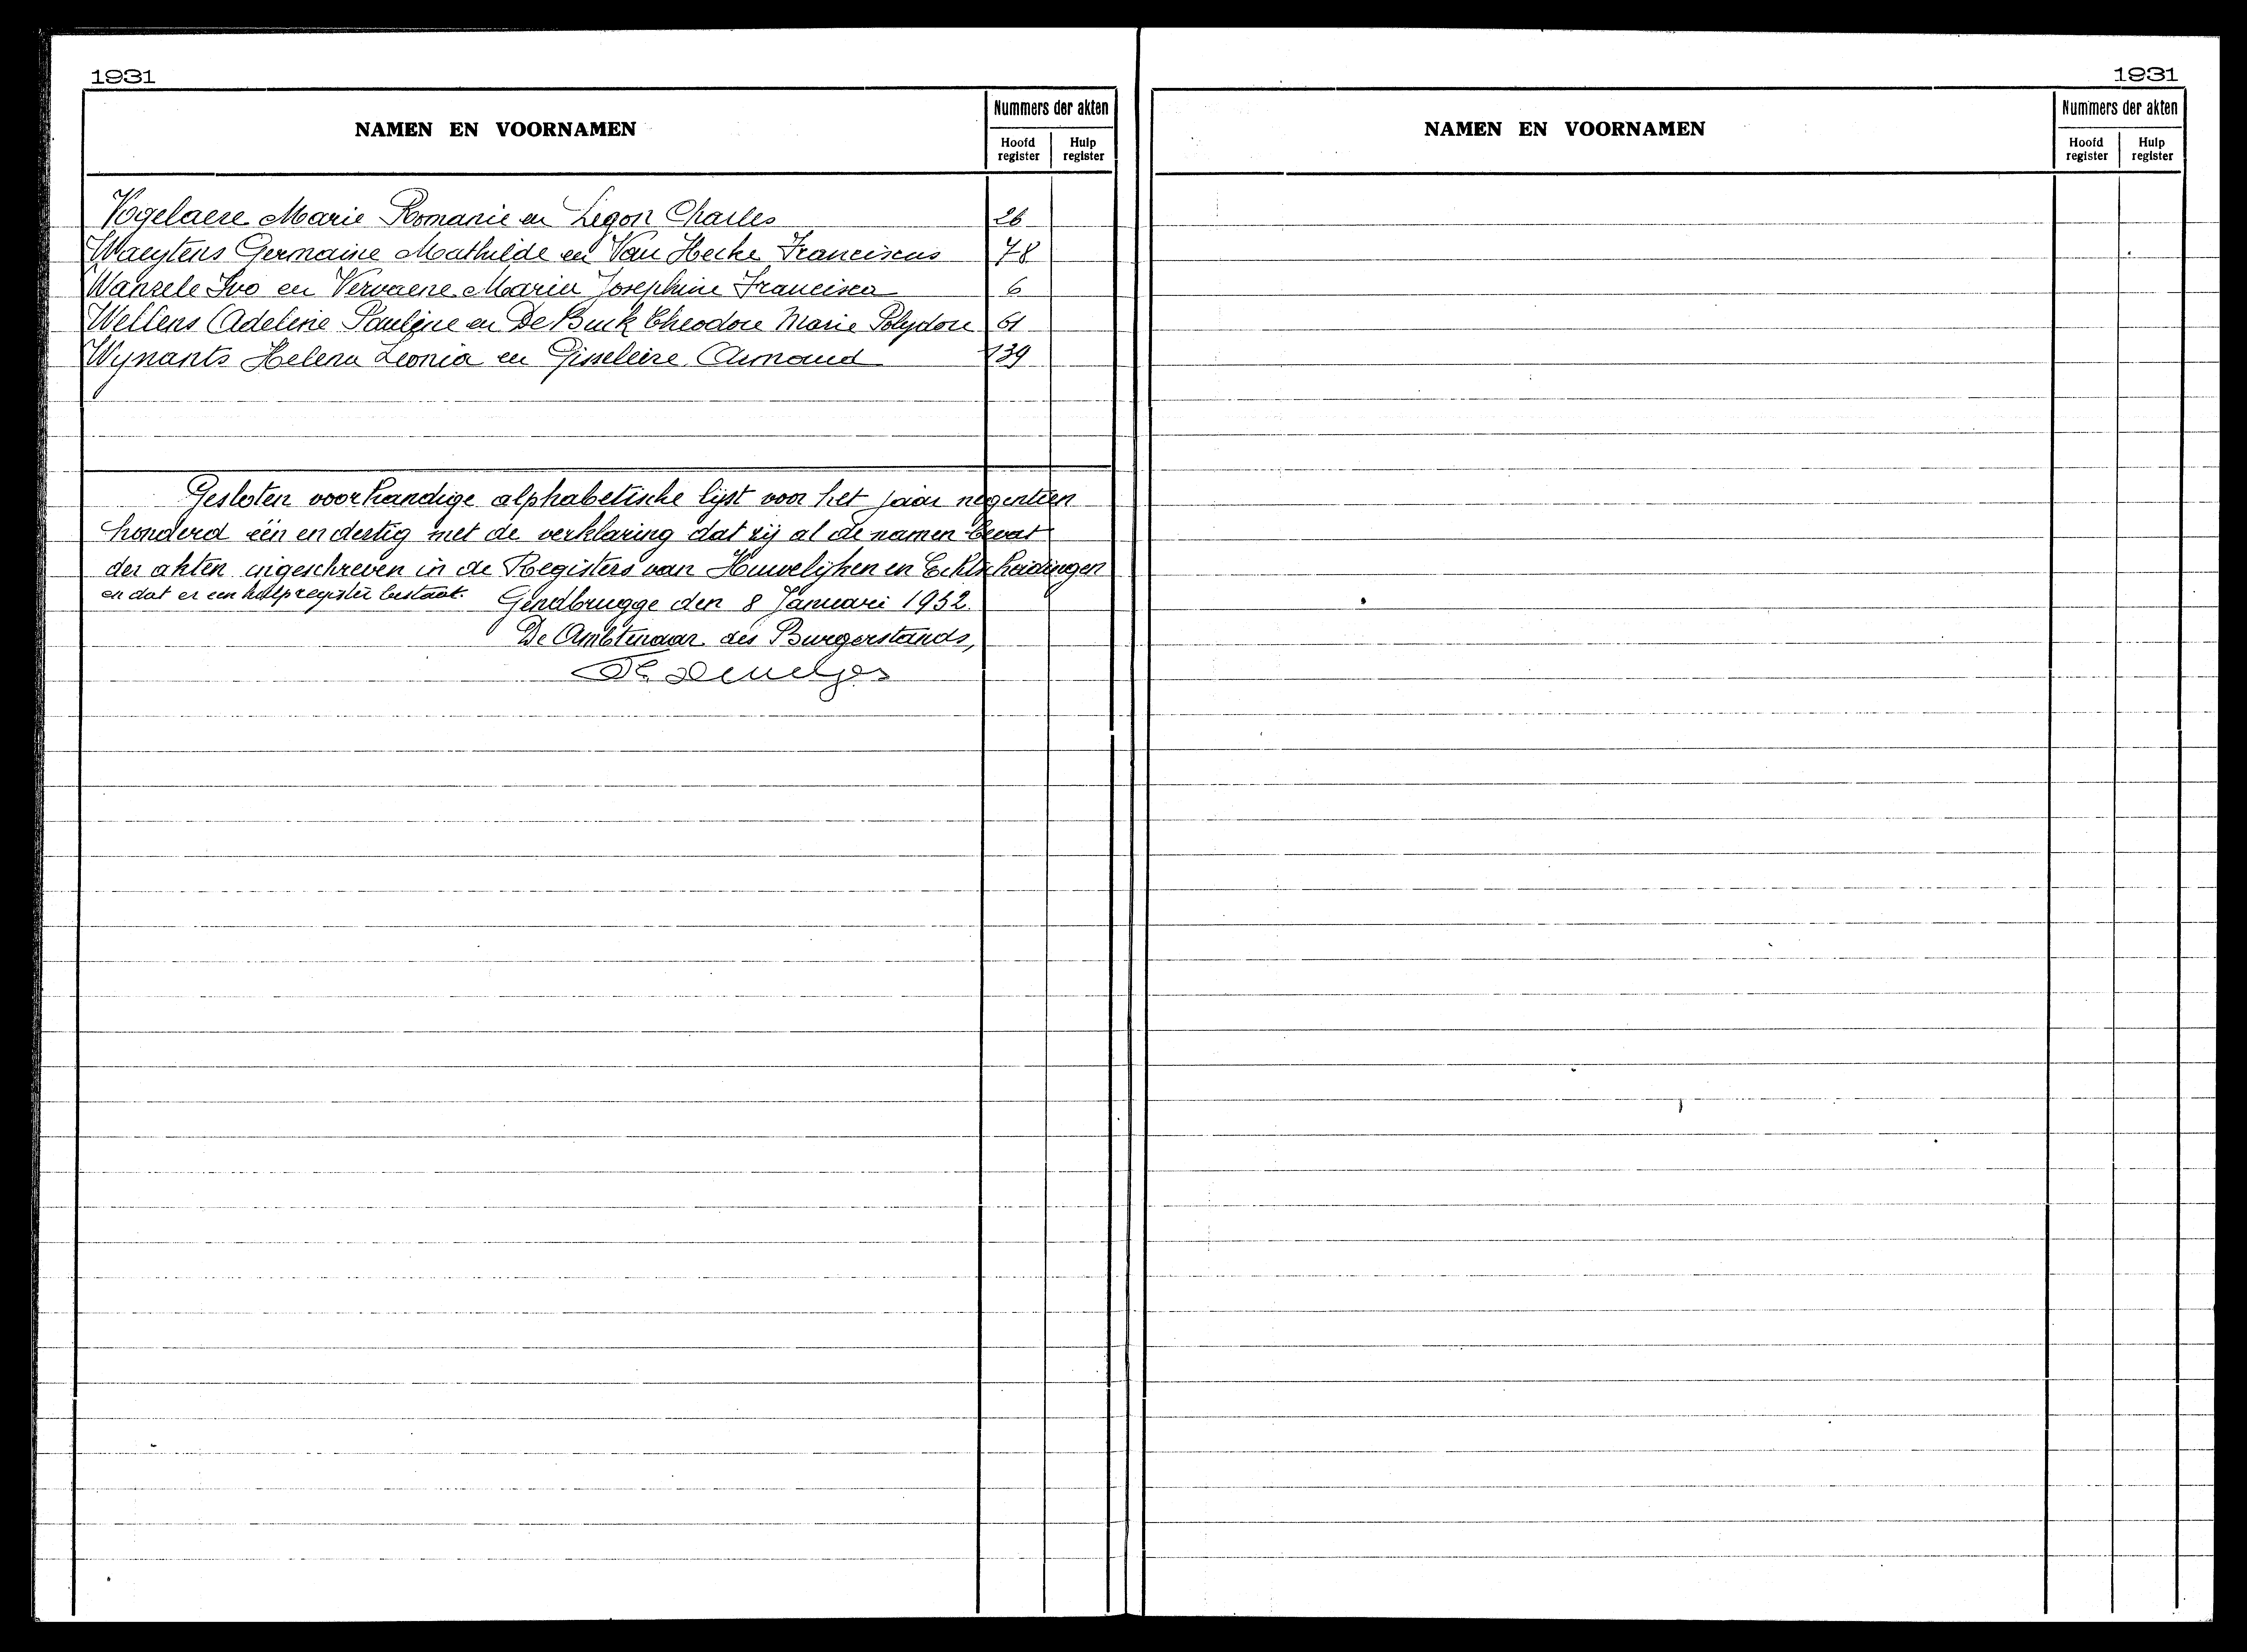 1931
NAMEN EN VOORNAMEN
Nummers der akten
Hoofd register
Hulp register
Vogelaere Marie Romanie en Ligon Charles 26
Waeytens Germaine Mathilde en Van Hecke Franciscus 78
Wanzele Ivo en Vervaene Maria Josephine Francisca 6
Wellens Adeline Pauline en De Buck Theodore Marie Polydore 61
Wynants Helena Leonia en Gisseleire Armand 139
Gesloten voorhandige alphabetische lijst voor het jaar negentien
honderd één en dertig met de verklaring dat zij al de namen bevat
der akten ingeschreven in de Registers van Huwelijken en Echtscheidingen
en dat er een hulpregister bestaat. Gendbrugge den 8 Januari 1932.
De Ambtenaar des Burgerstands,
1931
NAMEN EN VOORNAMEN
Nummers der akten
Hoofd register
Hulp register